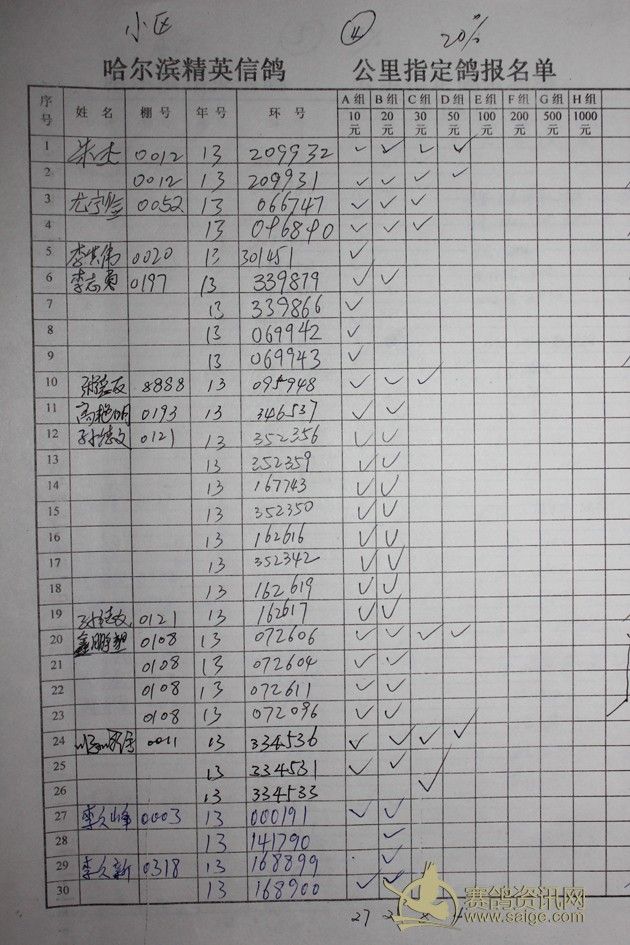 小区 20%
哈尔滨精英信鸽 公里指定鸽报名单
序号 姓名 棚号 年号 环号 A组10元 B组20元 C组30元 D组50元 E组100元 F组200元 G组500元 H组1000元
1 朱杰 0012 13 209932 ✓ ✓ ✓ ✓
2 0012 13 209931 ✓ ✓ ✓ ✓
3 0052 13 066747 ✓ ✓ ✓
4 13 ✓ ✓ ✓
5 0020 13 301451 ✓
6 李志勇 0197 13 339879 ✓ ✓
7 13 339866 ✓
8 13 069942 ✓
9 13 069943 ✓
10 8888 13 095948 ✓ ✓ ✓
11 高艳明 0193 13 346537 ✓ ✓
12 孙德文 0121 13 352356 ✓ ✓
13 13 352359 ✓ ✓
14 13 167743 ✓ ✓
15 13 352350 ✓ ✓
16 13 162616 ✓ ✓
17 13 352342 ✓ ✓
18 13 162619 ✓ ✓
19 孙德文 0121 13 162617 ✓ ✓
20 0108 13 072606 ✓ ✓ ✓ ✓
21 0108 13 072604 ✓ ✓
22 0108 13 072611 ✓ ✓
23 0108 13 072096 ✓ ✓
24 0011 13 334536 ✓ ✓ ✓ ✓
25 13 334531 ✓ ✓
26 13 334533 ✓
27 李久峰 0003 13 000191 ✓ ✓
28 13 141790 ✓
29 李久新 0318 13 168899 ✓
30 13 168900 ✓ ✓
27
赛鸽资讯网
www.saige.com